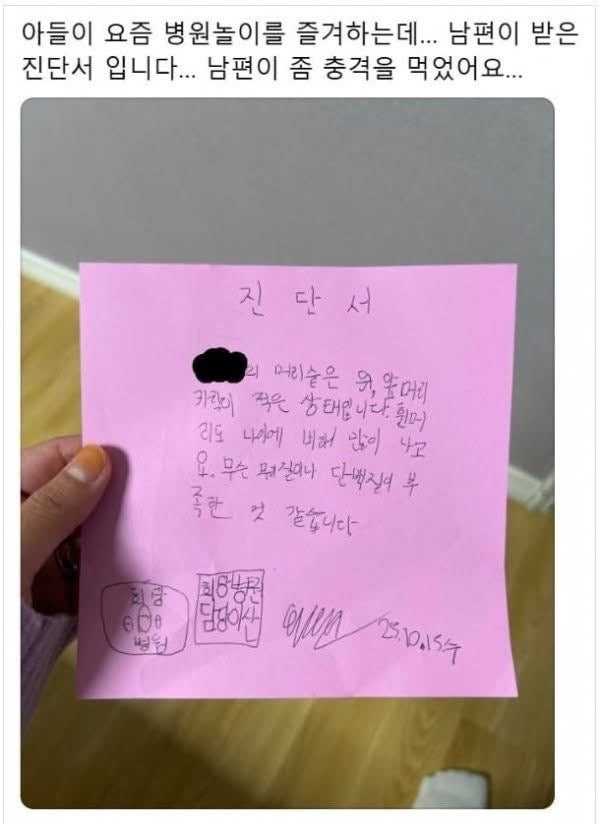 아들이 요즘 병원놀이를 즐겨하는데... 남편이 받은
진단서 입니다... 남편이 좀 충격을 먹었어요...
진 단 서
의 머리숱은 위, 앞머리
카락이 적은 상태입니다. 흰머
리도 나이에 비해 많이 나고
요. 무슨 단백질이 부
족한 것 같습니다
희망
병원
희망병원
담당의사
25.10.15수